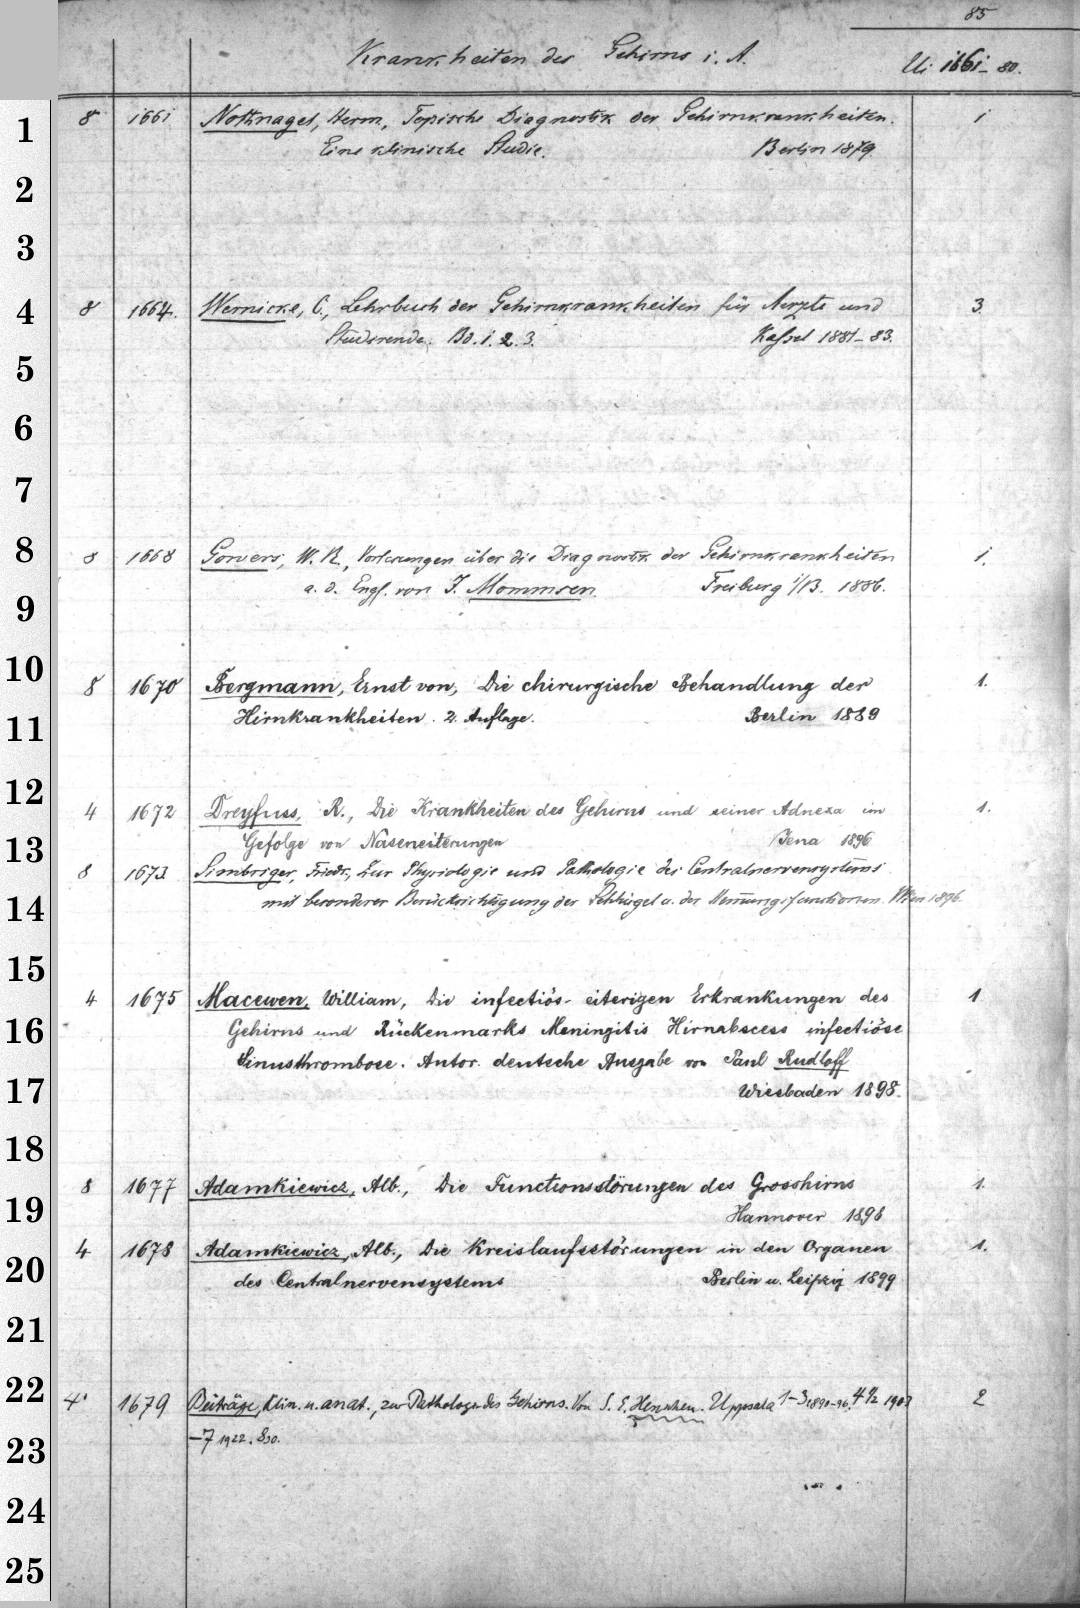 85
Krankheiten des Gehirns i. A. Ui 1661-80.
1 8 1661 Nothnagel, Herm., Topische Diagnostik der Gehirnkrankheiten. 1
Eine klinische Studie. Berlin 1879.
2
3
4 8 1664. Wernicke, C., Lehrbuch der Gehirnkrankheiten für Aerzte und 3
Studirende. Bd. 1. 2. 3. Kassel 1881-83.
5
6
7
8 8 1668 Gowers, W. R., Vorlesungen über die Diagnostik der Gehirnkrankheiten 1.
9 a. d. Engl. von J. Mommsen. Freiburg i/B. 1886.
10 8 1670 Bergmann, Ernst von, Die chirurgische Behandlung der 1.
11 Hirnkrankheiten. 2. Auflage. Berlin 1889
12 4 1672 Dreyfuss, R., Die Krankheiten des Gehirns und seiner Adnexa im 1.
13 Gefolge von Naseneiterungen Jena 1896
8 1673 Simbriger, Friedr., Zur Physiologie und Pathologie des Centralnervensystems
14 mit besonderer Berücksichtigung der Sehhügel u. der Hemmungsfunctionen. Wien 1896.
15
4 1675 Macewen, William, Die infectiös-eiterigen Erkrankungen des 1
16 Gehirns und Rückenmarks Meningitis Hirnabscess infectiöse
Sinusthrombose. Autor. deutsche Ausgabe von Paul Rudloff
17 Wiesbaden 1898.
18
8 1677 Adamkiewicz, Alb., Die Functionsstörungen des Grosshirns 1.
19 Hannover 1898
20 4 1678 Adamkiewicz, Alb., Die Kreislaufsstörungen in den Organen 1.
des Centralnervensystems Berlin u. Leipzig 1899
21
22 4° 1679 Beiträge, Klin. u. anat., zur Pathologie des Gehirns. Von S. E. Henschen. Uppsala 1-3 1890-96. 4 1/2 1903 2
23 -7 1922. 830.
24
25